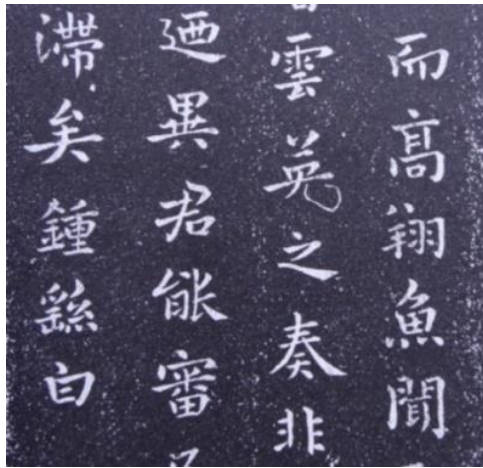 而高翔魚聞
雲英之奏非
迺異君能審
滯矣鍾繇白